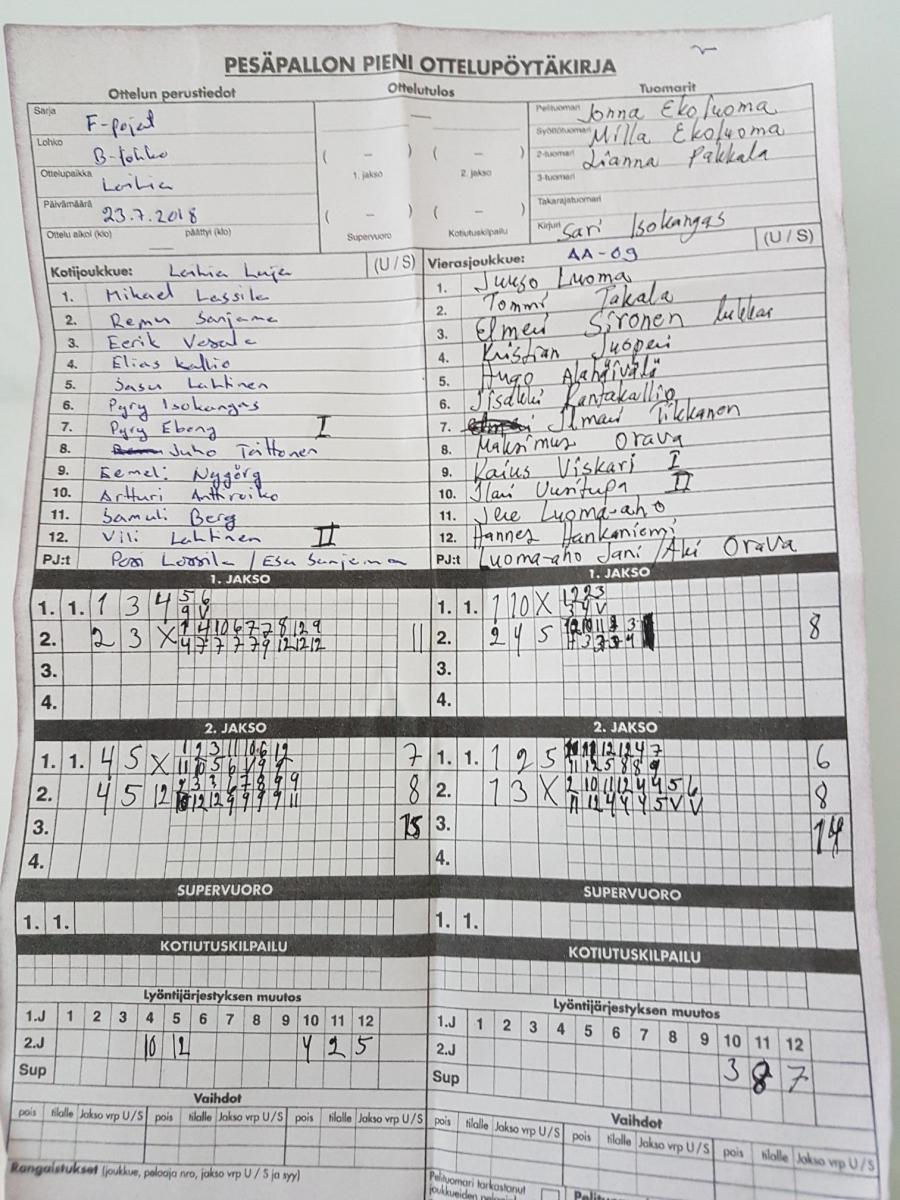 PESÄPALLON PIENI OTTELUPÖYTÄKIRJA
Ottelun perustiedot
Ottelutulos
Tuomarit
Sarja F-pojat
Lohko B-lohko
Ottelupaikka Laihia
Päivämäärä 23.7.2018
Ottelu alkoi (klo) päättyi (klo)
( – ) ( – )
1. jakso 2. jakso
( – ) ( – )
Supervuoro Kotiutuskilpailu
Pelituomari Jonna Ekoluoma
Syöttötuomari Milla Ekoluoma
2-tuomari Lianna Pakkala
3-tuomari
Takarajatuomari
Kirjuri Sari Isokangas
Kotijoukkue: Laihia Luja (U / S)
1. Mikael Lassila
2. Remu Sanjama
3. Eerik Vesala
4. Elias Kallio
5. Sasu Lahtinen
6. Pyry Isokangas
7. Pyry Ebeny I
8. Juho Taittonen
9. Eemeli Nygörg
10. Artturi Anttiroiko
11. Samuli Berg
12. Vili Lahtinen II
PJ:t Pasi Lassila / Esa Sanjama
Vierasjoukkue: AA-09 (U / S)
1. Juuso Luoma
2. Tommi Takala
3. Elmeri Sironen lukkar
4. Kristian Juoperi
5. Hugo Alahäivälä
6. Iisakki Rantakallio
7. Ilmari Tikkanen
8. Maksimus Orava
9. Kaius Viskari I
10. Ilari Uusitupa II
11. Jere Luoma-aho
12. Hannes Hankaniemi
PJ:t Luoma-aho Jani / Aki Orava
1. JAKSO
1. 1. 1 3 4 5 6
9 V
2. 2 3 X 1 4 10 6 7 7 8 12 9 11
4 7 7 7 7 9 12 12 12
3.
4.
1. JAKSO
1. 1. 1 10 X 1 2 2 3
3 4 V
2. 2 4 5 8
3.
4.
2. JAKSO
1. 1. 4 5 X 1 2 3 11 10 6 12 7
11 10 5 6 V 9 9
2. 4 5 12 2 3 3 6 7 8 9 9 8
12 12 9 9 9 9 11
3. 15
4.
2. JAKSO
1. 1. 1 2 5 12 12 4 7 6
11 12 5 8 8 9
2. 1 3 X 2 10 11 12 4 4 5 6 8
11 12 4 4 4 5 V V
3. 14
4.
SUPERVUORO
1. 1.
SUPERVUORO
1. 1.
KOTIUTUSKILPAILU
KOTIUTUSKILPAILU
Lyöntijärjestyksen muutos
1.J 1 2 3 4 5 6 7 8 9 10 11 12
2.J 10 12 4 2 5
Sup
Lyöntijärjestyksen muutos
1.J 1 2 3 4 5 6 7 8 9 10 11 12
2.J 3 8 7
Sup
Vaihdot
pois tilalle Jakso vrp U / S pois tilalle Jakso vrp U / S pois tilalle Jakso vrp U / S
Vaihdot
pois tilalle Jakso vrp U / S pois tilalle Jakso vrp U / S pois tilalle Jakso vrp U / S
Rangaistukset (joukkue, pelaaja nro, jakso vrp U / S ja syy)
Pelituomari tarkastanut
joukkueiden